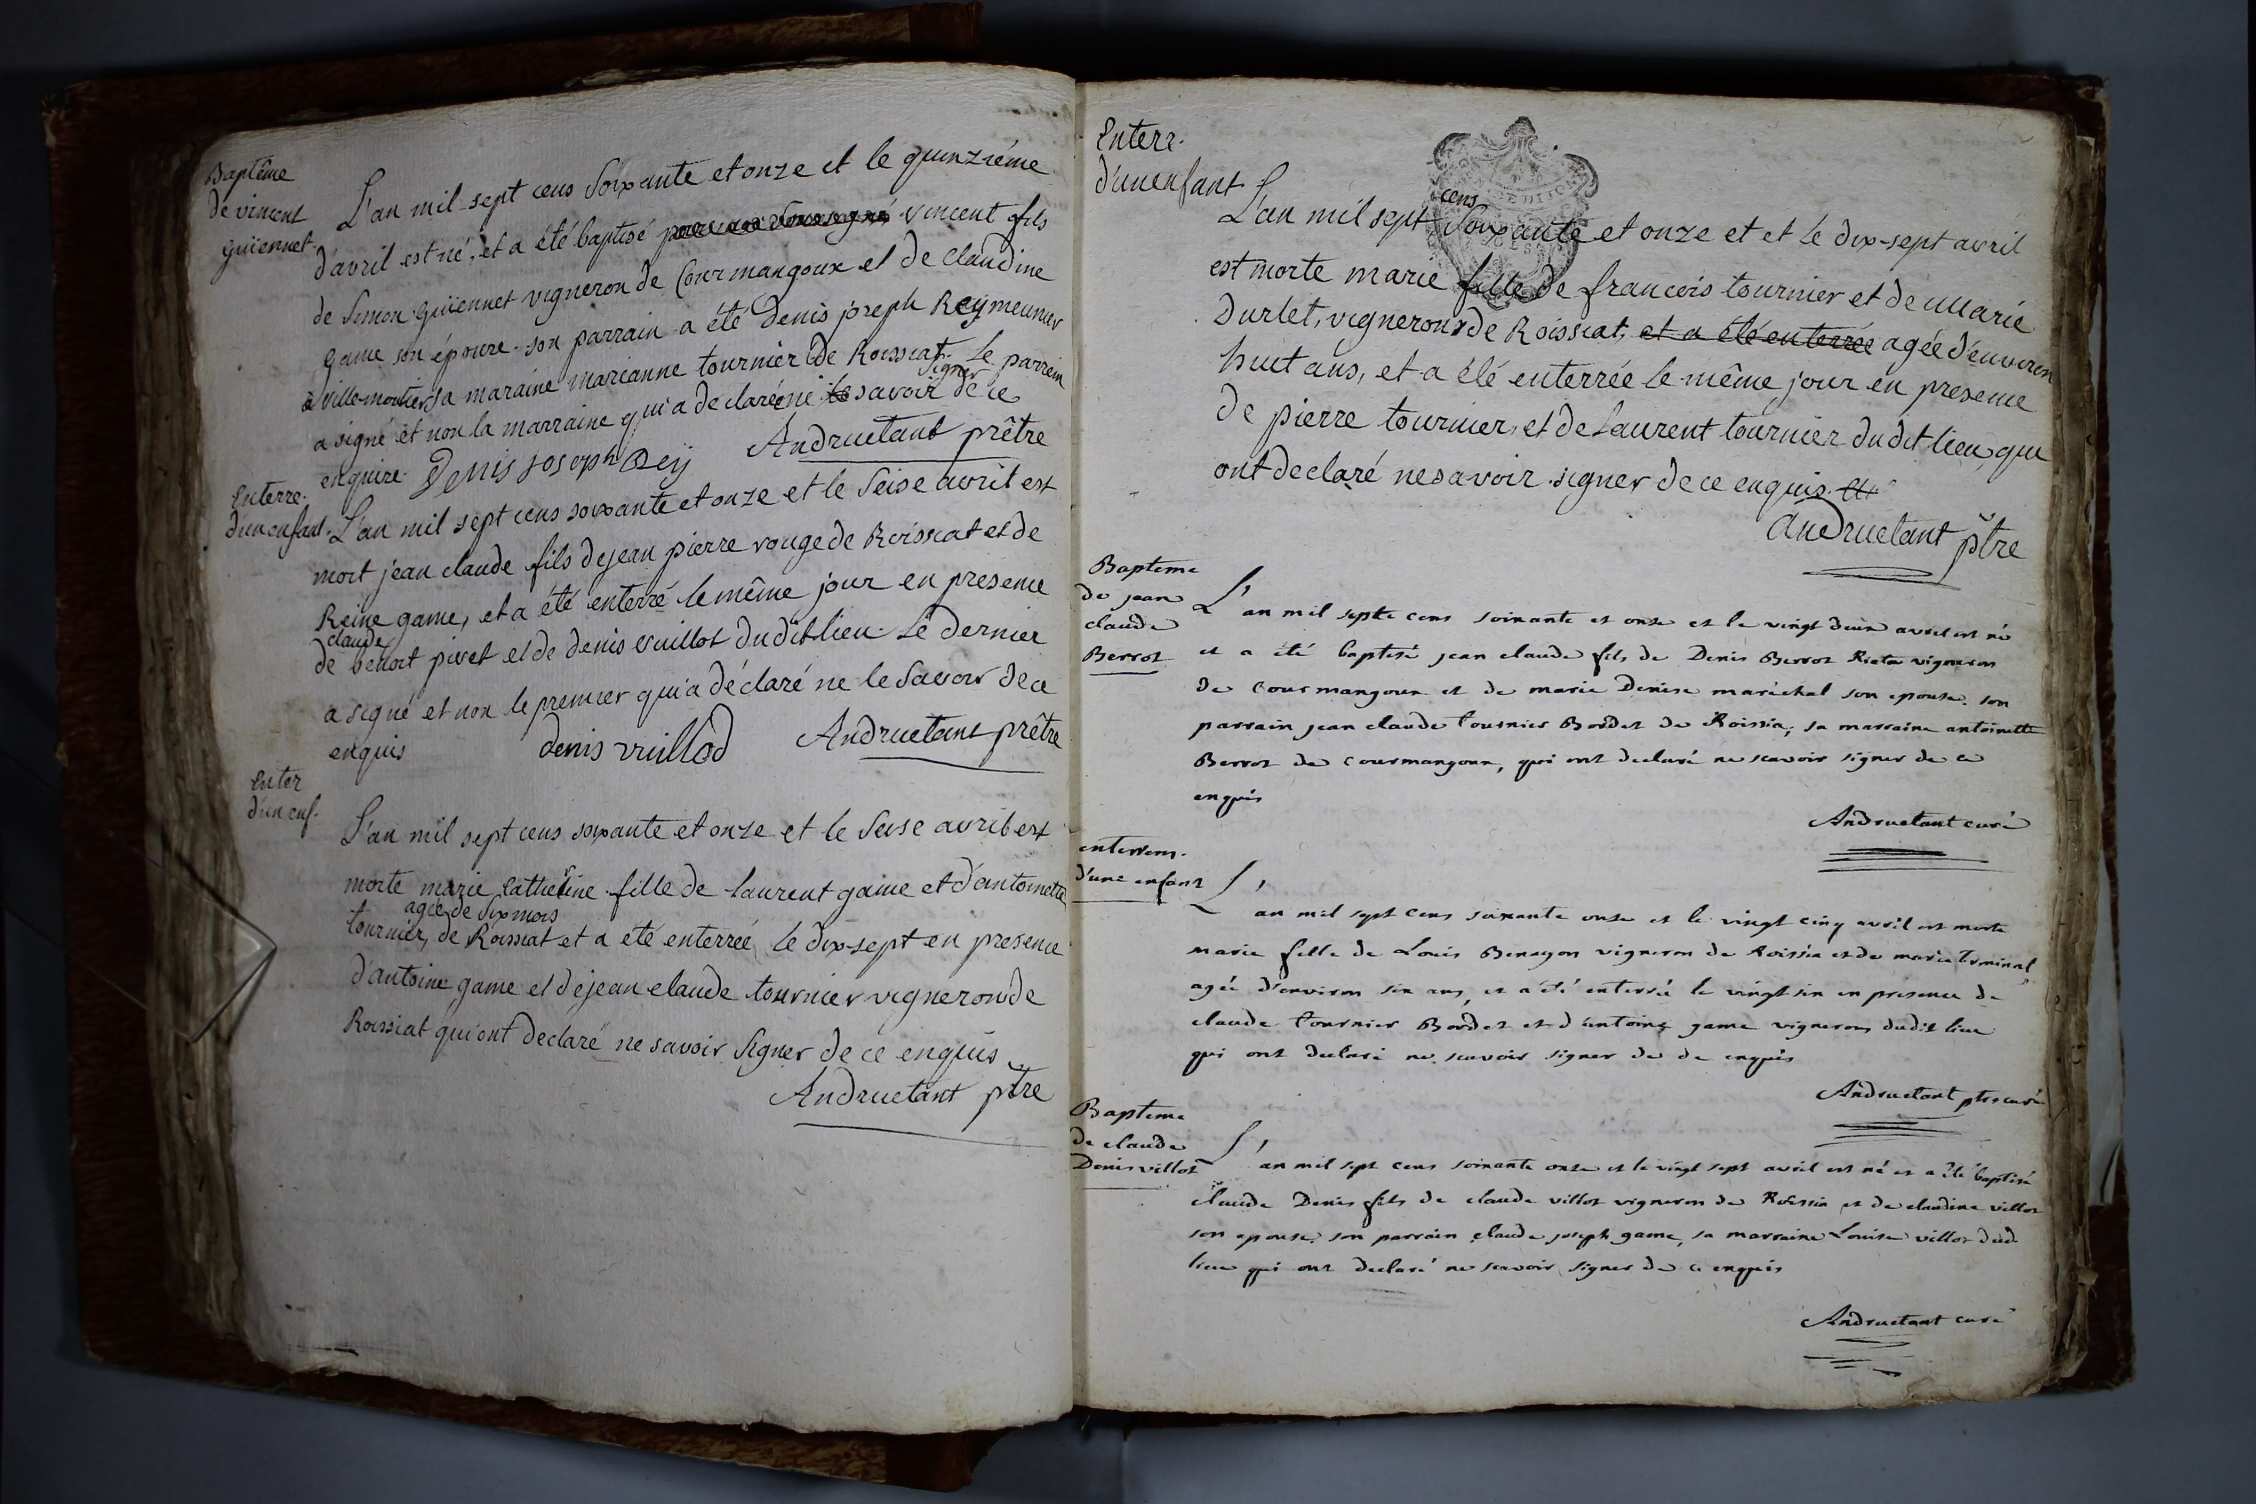 Baptême
de vincent
guiennet
L'an mil sept cens Soixante et onze et le quinziéme
d'avril est né, et a été baptisé vincent fils
de Simon guiennet vigneron de Courmangoux et de Claudine
game son épouse. son parrain a été Denis joseph Reymeunier
a villemoutier sa maraine marianne tournier de Roissiat. Le parrein
a signé et non la marraine qui a declarée ne savoir signer de ce
enquire. Denis joseph Reij Andruetant prêtre
Enterre.
d'un enfant.
L'an mil sept cens soixante et onze et le Seise avril est
mort jean claude fils de jean pierre rouge de Roissiat et de
Reine game, et a été enterré le même jour en presence
de claude benoit pivet et de denis vuillot dudit lieu. Le dernier
a signé et non le premier qui a déclaré ne le savoir de ce
enquis denis vuillod Andruetant prêtre
Enter
d'un enf.
L'an mil sept cens soixante et onze et le Seise avril est
morte marie Catherine fille de laurent game et d'antoinette
tournier, de Roissiat agée de six mois et a été enterreé le dix-sept en presence
d'antoine game et de jean claude tournier vigneron de
Roissiat qui ont declaré ne savoir signer de ce enquis
Andruetant ptre
Enterr.
d'un enfant
L'an mil sept cens Soixante et onze et et le dix-sept avril
est morte marie fille de francois tournier et de Marie
Durlet, vignerons de Roissiat, et a été enterrée agée d'environ
huit ans, et a été enterrée le même jour en presence
de pierre tournier, et de Laurent tournier dudit lieu, qui
ont declaré ne savoir signer de ce enquis.
Andruetant ptre
Bapteme
de jean
claude
Berrot
L'an mil septe cens soixante et onze et le vingt deux avril est né
et a été baptisé jean claude fils de Denis Berrot vigneron
de Courmangoux et de marie Denise maréchal son epouse. son
parrain jean claude tournier Bordet de Roissia, sa marraine antoinette
Berrot de Courmangoux, qui ont declaré ne scavoir signer de ce
enquis
Andruetant curé
enterrem.
d'une enfant
L'an mil sept cens soixante onze et le vingt cinq avril est morte
marie fille de Louis vigneron de Roissia et de marie
agée d'environ six ans, et a été enterrée le vingt six en presence de
claude tournier Bordet et d'antoine game vignerons dudit lieu
qui ont declaré ne scavoir signer de de enquis
Andruetant ptre curé
Bapteme
de claude
Denis villot
L'an mil sept cens soixante onze et le vingt sept avril est né et a été baptisé
claude Denis fils de claude villot vigneron de Roissia et de claudine villot
son epouse, son parrain claude joseph game, sa marraine Louise villot dud
lieu qui ont declaré ne scavoir signer de ce enquis
Andruetant curé